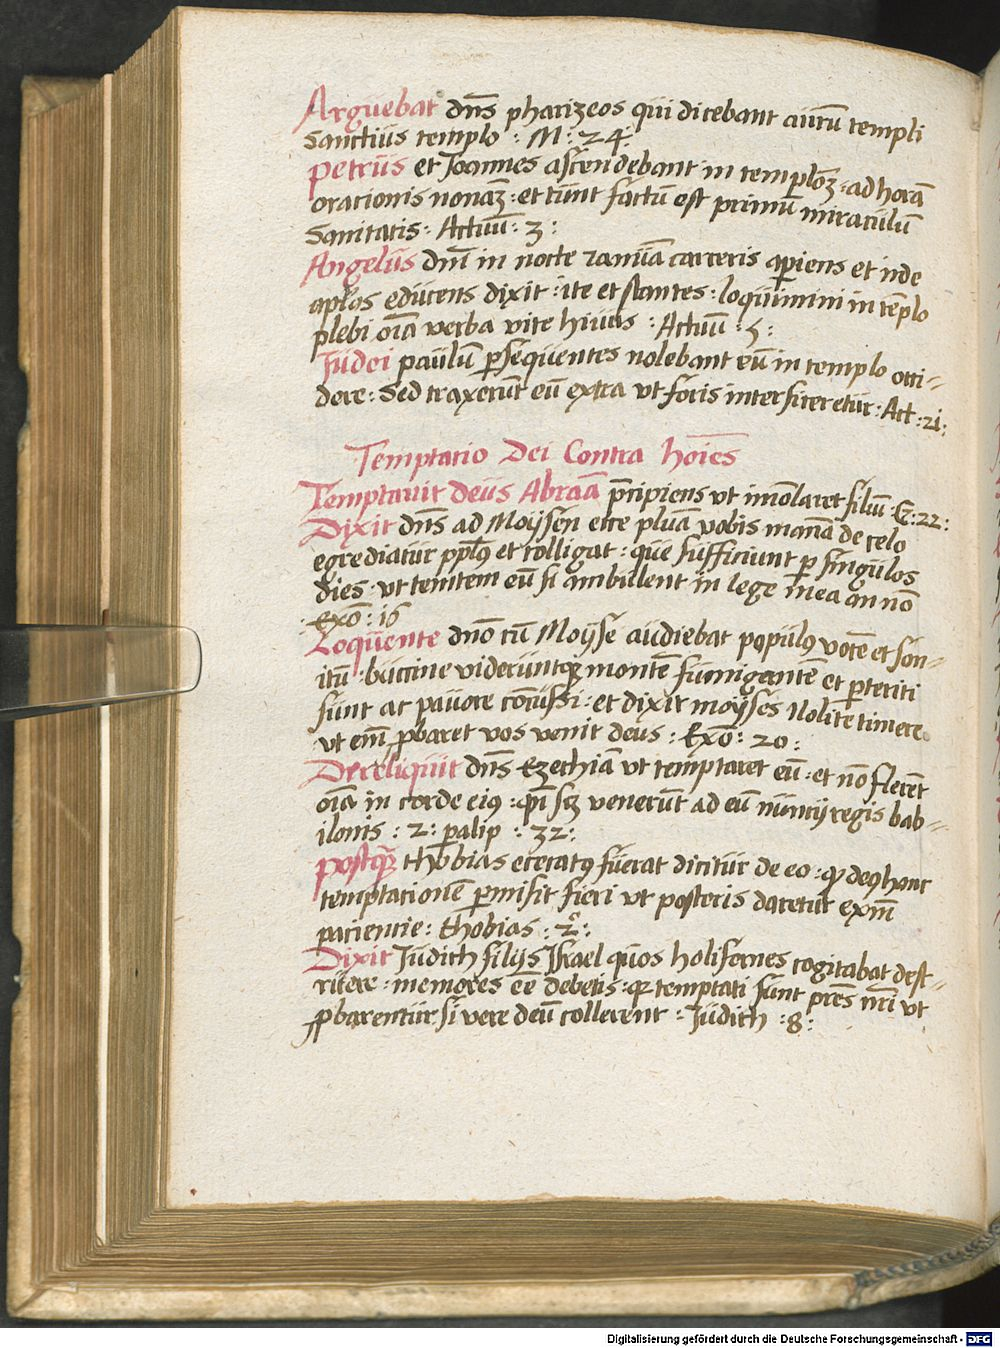 Arguebat dn̄s pharizeos qui dicebant aurū templi
sanctius templo : M : 24 :
Petrus et Joannes ascendebant in temploꝫ : ad horā
orationis nonaꝫ : et tunt factū est primū miraculū
Sanitatis : Actuū : 3 :
Angelus dnī in nocte ianuā carceris aperiens et inde
aplōs educens dixit : ite et stantes : loquimini in tēplo
plebi oīa verba vite huius : Actuū : 5 :
Iudei paulū ꝑsequentes nolebant eū in templo occi=
dere : Sed traxerūt eū extra vt foris interficeretur : Act : 21 :
Temptatio Dei Contra hoīes
Temptauit deus Abraā p̄cipiens vt imolaret filiū : G : 22 :
Dixit dn̄s ad Moijsen ecce pluā vobis manā de celo
egrediatur pplūs et colligat : que sufficiunt ꝑ singulos
dies : vt temtem eū si ambulent in lege mea an nō
: Exō : 16
Loquente dnō cū Moijse audiebat populus vocē et son=
itū : buccine videruntqꝫ montē fumigantē et ꝑteriti
sunt ac pauore cōcussi : et dixit moijses Nolite timere
vt enī ꝓbaret vos venit deus : Exō : 20 :
Dereliquit dn̄s Ezechiā vt temptaret eū : et nō flerēt
oīa in corde eius : qn̄ scꝫ venerūt ad eū nuncij regis bab=
ilonis : 2 : palip : 32 :
Postqꝫ thobias cecatus fuerat dicitur de eo : qꝫ deus hanc
temptationē permisit fieri vt posteris daretur exm̄
pacientie : thobias : 2 :
Dixit Iudith filijs Israel quos holifernes cogitabat dest=
ruere : memores eē debetis : qꝛ temptati sunt prēs nrī vt
ꝓbarentur si vere deū collerent : Iudith : 8 :
Digitalisierung gefördert durch die Deutsche Forschungsgemeinschaft - DFG